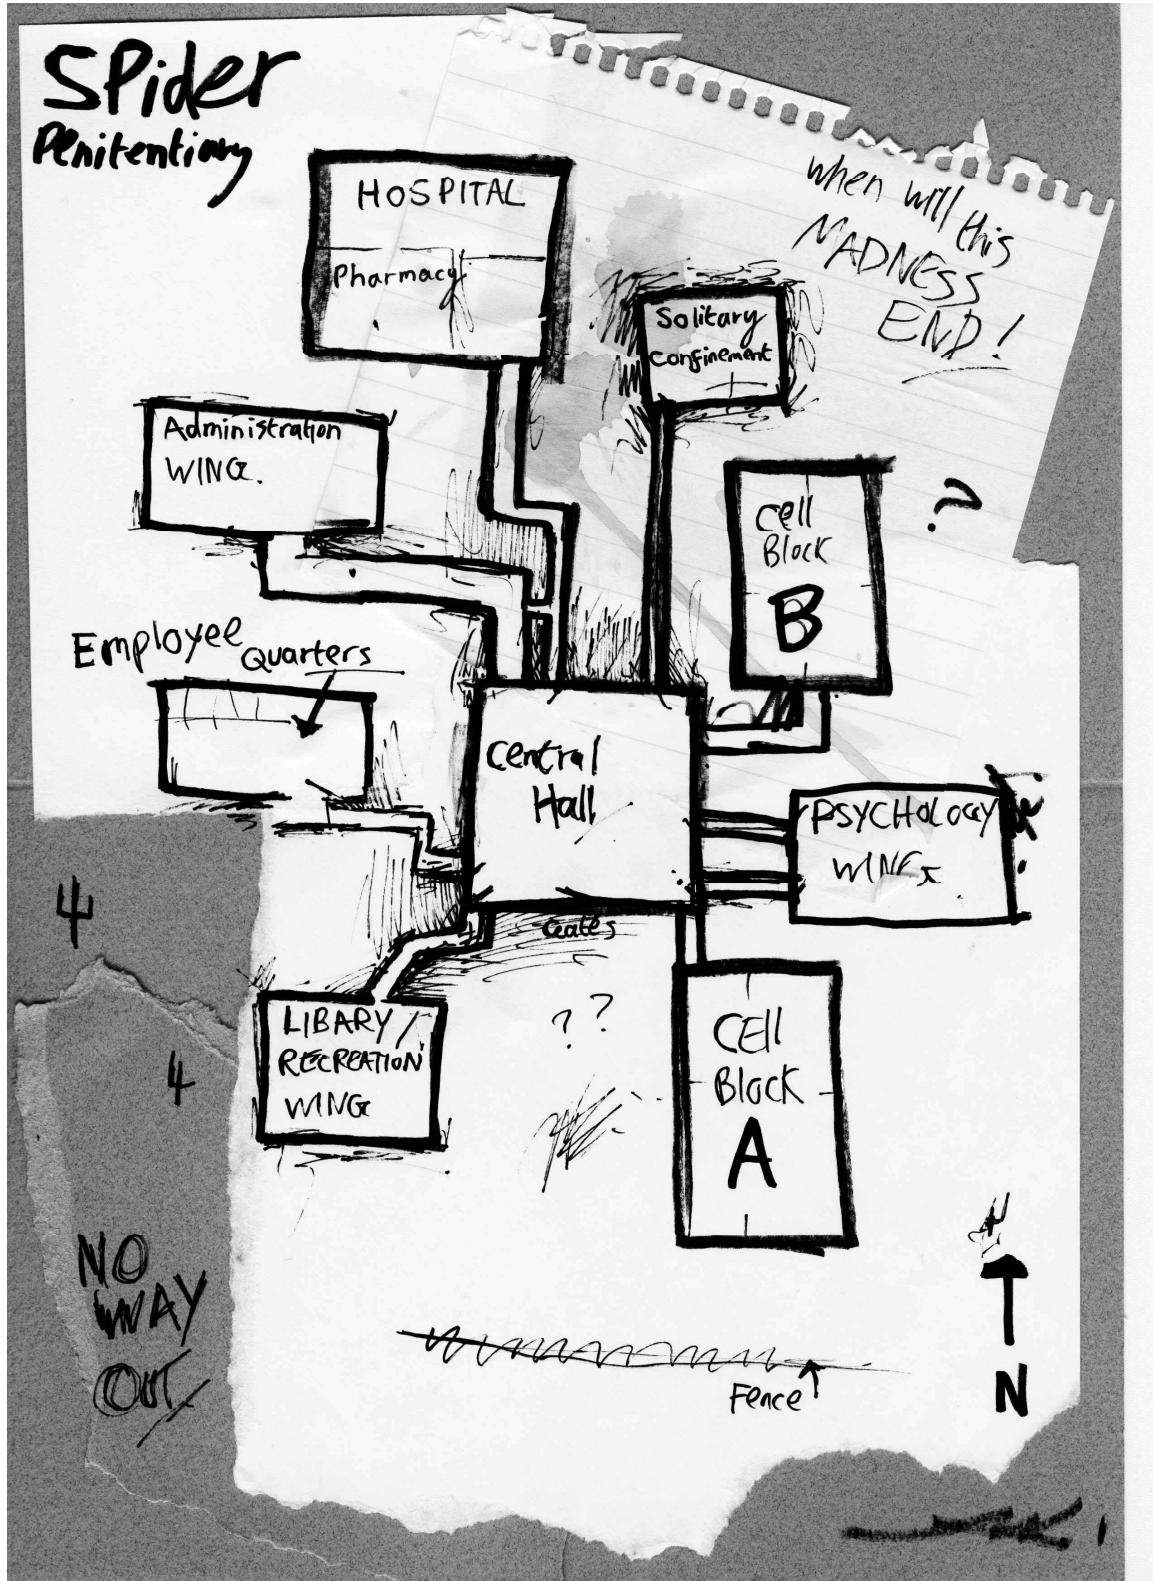 SPider
Penitentiary
when will this
MADNESS
END!
HOSPITAL
Pharmacy
Solitary
Confinement
Administration
WING.
Cell
Block
B
?
Employee
Quarters
Central
Hall
PSYCHOLOGY
WING
Gates
LIBARY/
RECREATION
WING
? ?
CEll
Block
A
4
4
NO
WAY
OUT
Fence
N